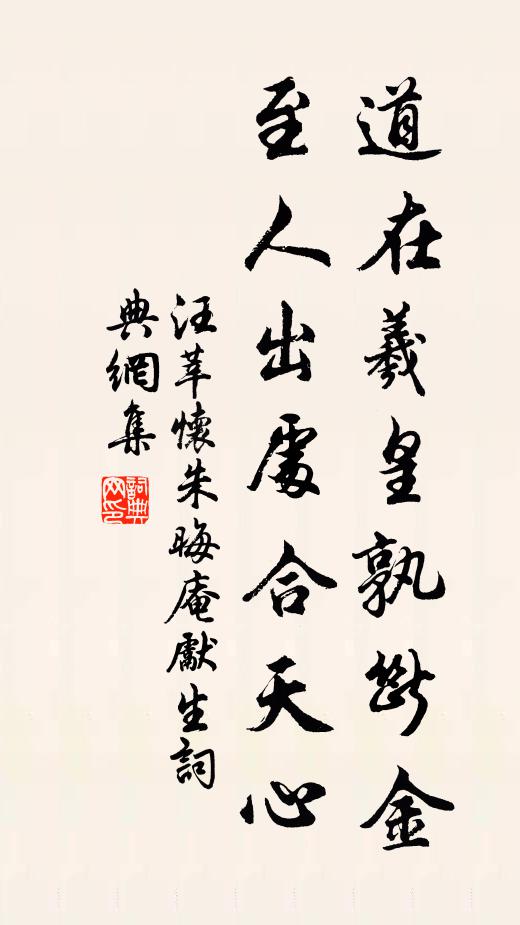 道在羲皇孰斷金
至人出處合天心
汪莘懷朱晦庵獻生詞
典網集
詞典网印